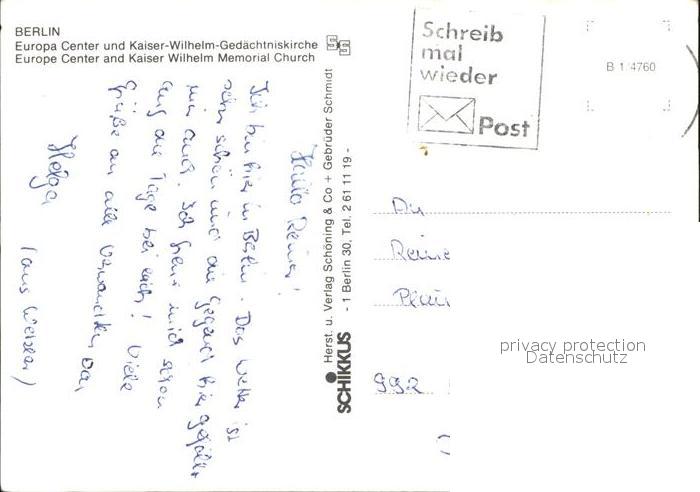 BERLIN
Europa Center und Kaiser-Wilhelm-Gedächtniskirche
Europe Center and Kaiser Wilhelm Memorial Church
Hallo Reiner!
Ich bin hier in Berlin. Das Wetter ist
sehr schön und die Gegend hier gefällt
mir auch. Ich freue mich schon
auf die Tage bei euch! Viele
Grüße an alle Verwandten, von
Helga
(aus Weiden)
Herst. u. Verlag Schöning & Co + Gebrüder Schmidt
- 1 Berlin 30, Tel. 2 61 11 19 -
SCHIKKUS
Schreib
mal
wieder
Post
B 1/4760
An
992
privacy protection
Datenschutz